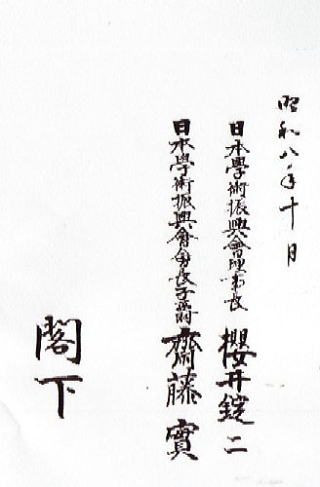 昭和八年十月
日本學術振興會理事長 櫻井錠二
日本學術振興會會長子爵 齋藤實
閣下